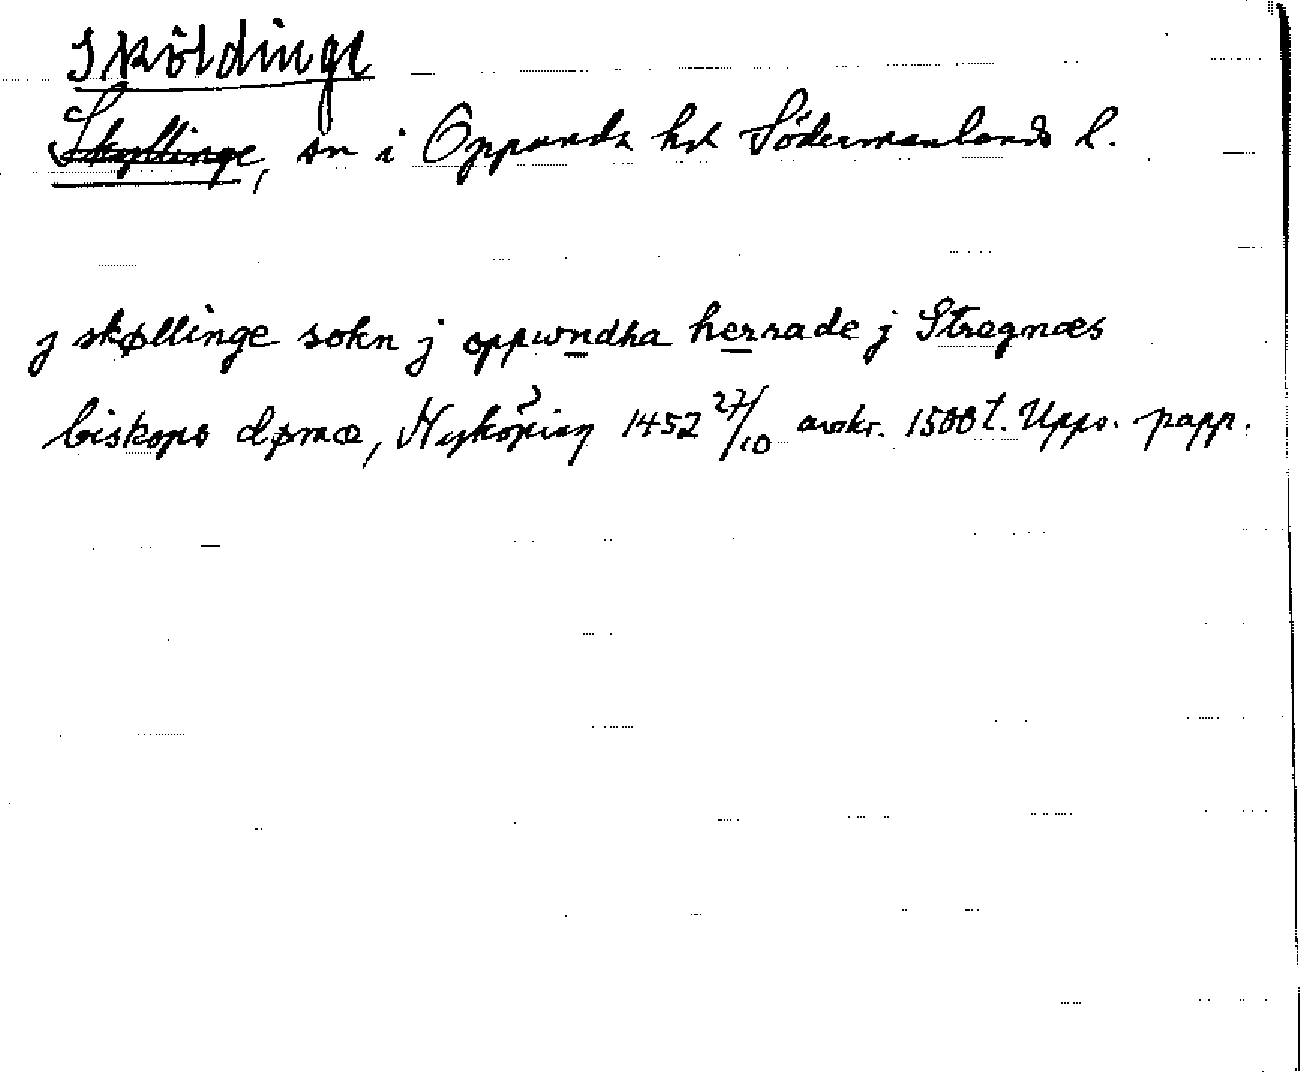 Sköldinge
Skyllinge, sn i Oppunda hd Södermanlands l.
j skøllinge sokn j oppwndha herrade j Stregnæs
biskops dømæ, Nyköping 1452 27/10 avskr. 1500 t. Upps. papp.